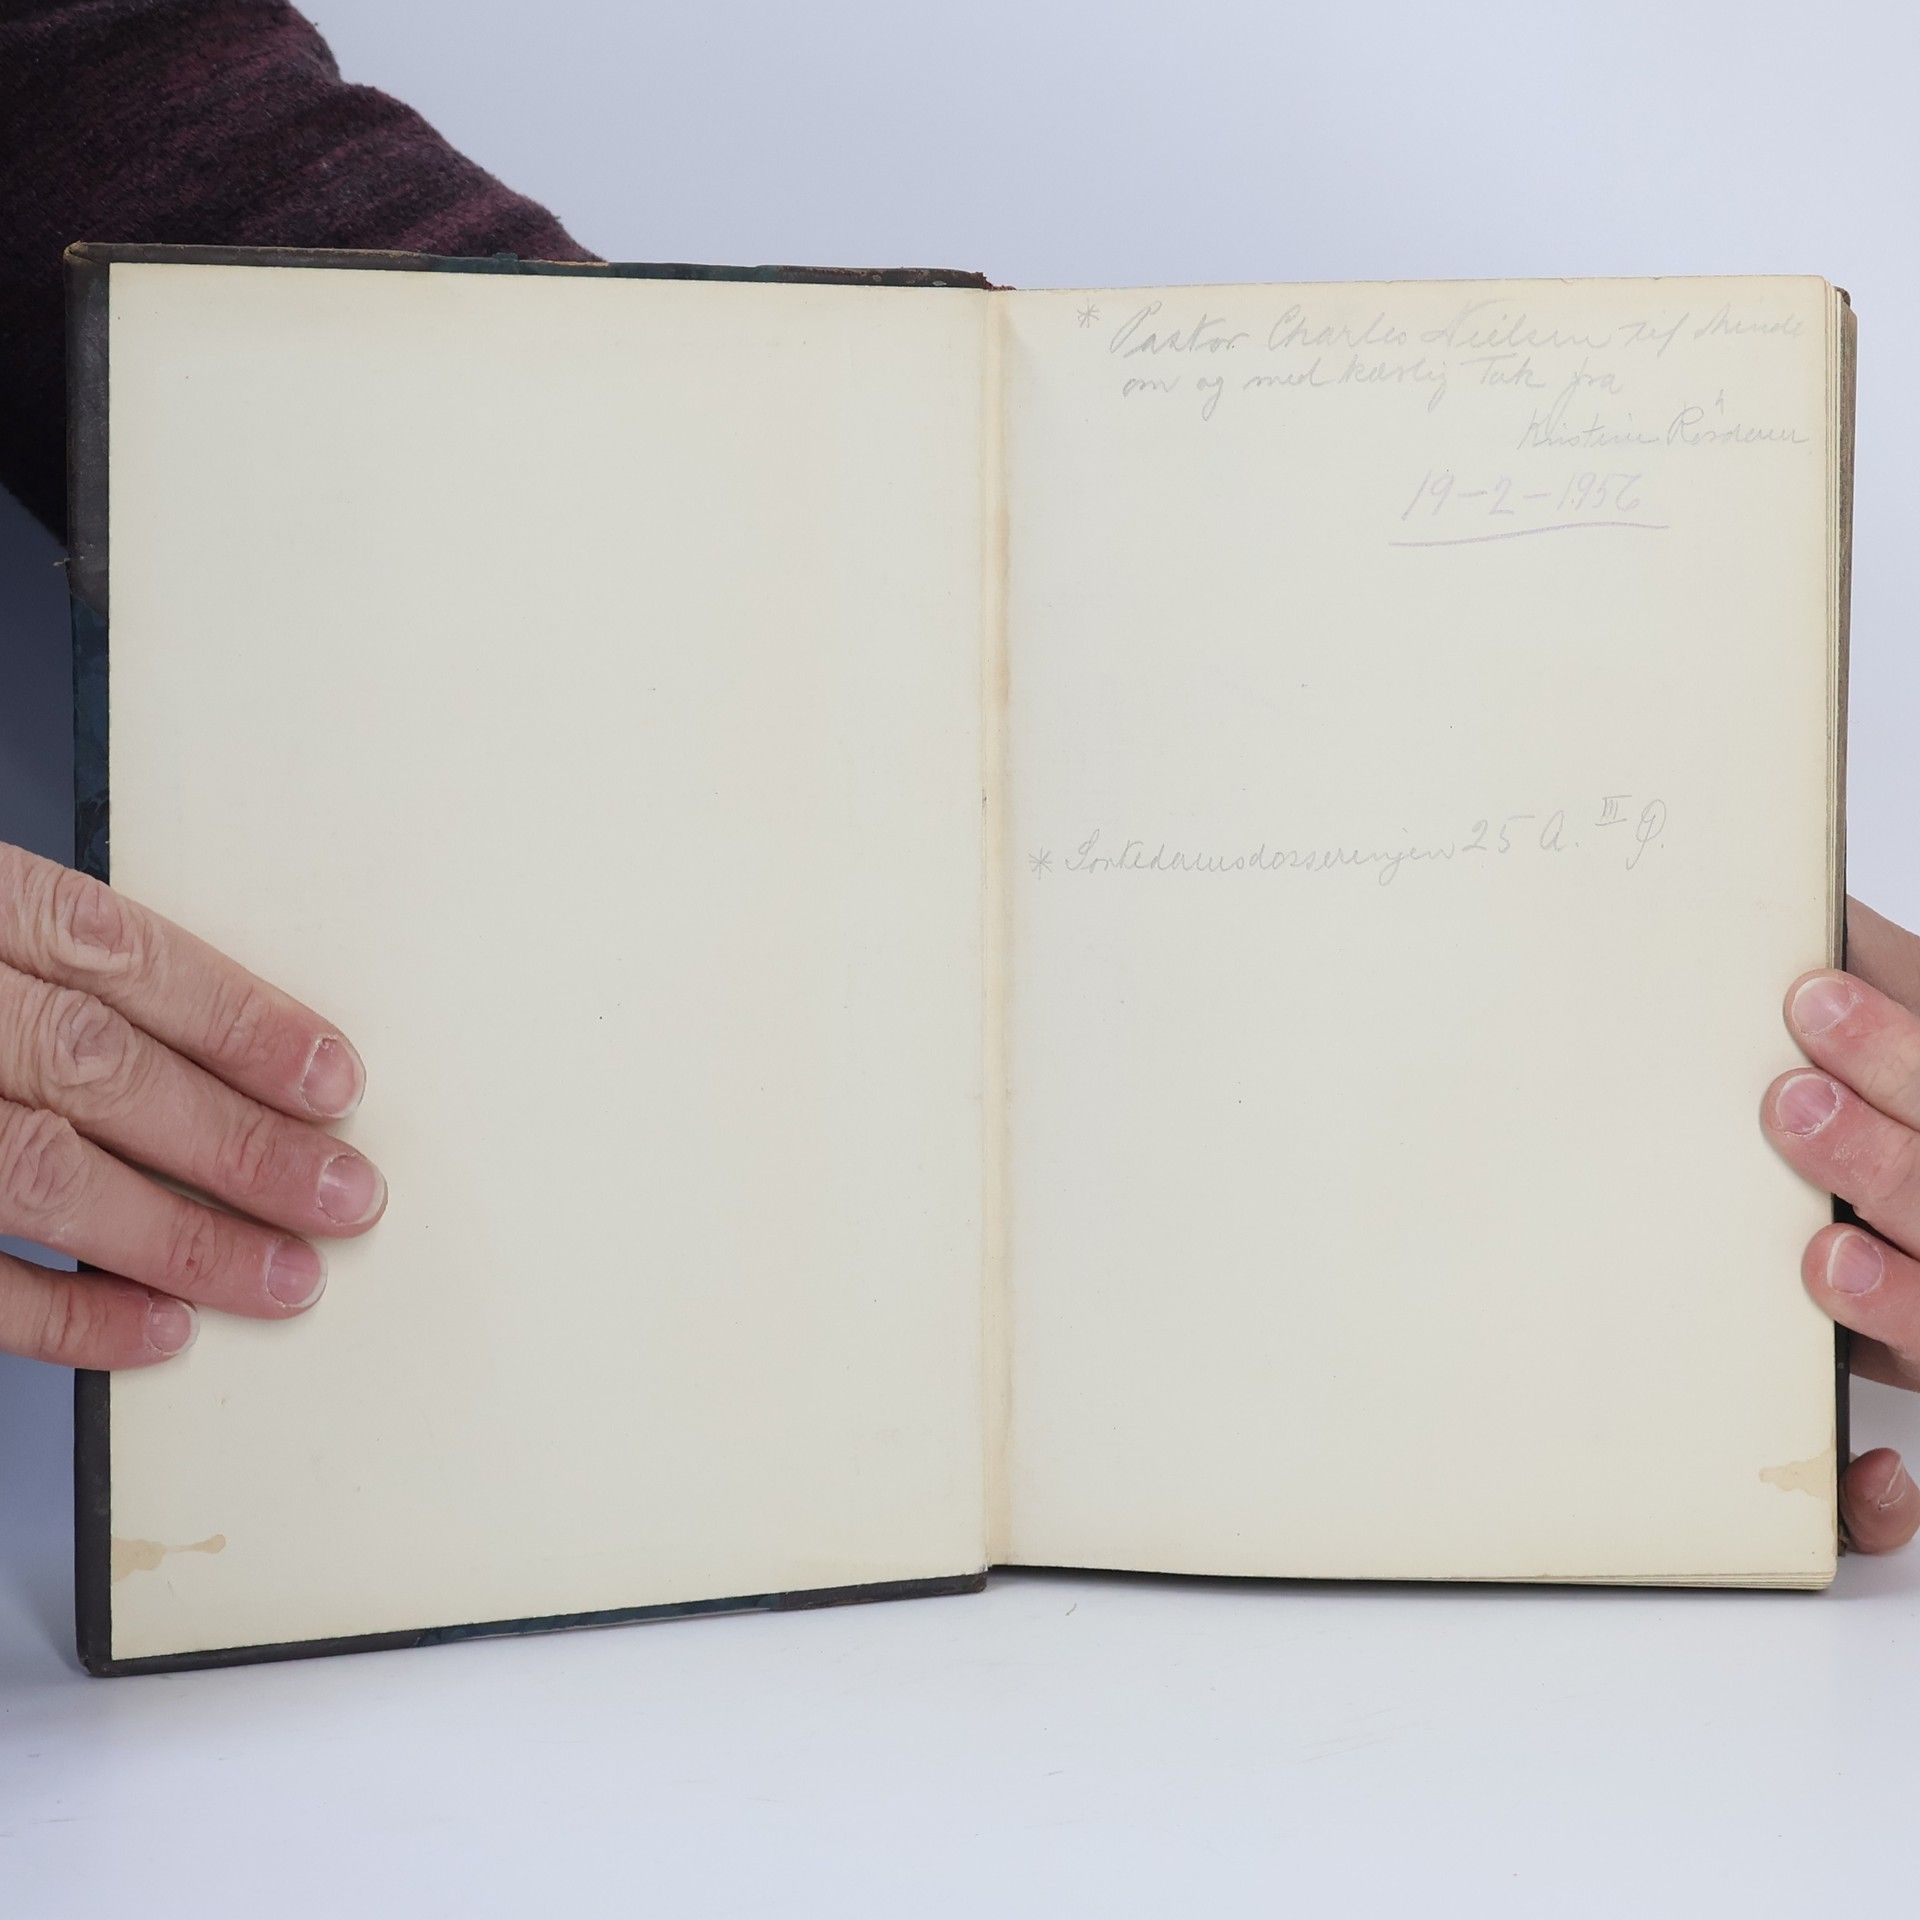 * Pastor Charles Nielsen til Minde
om og med kærlig Tak fra
Kristine
19-2-1956
* Sortedamsdosseringen 25 A. III Ø.